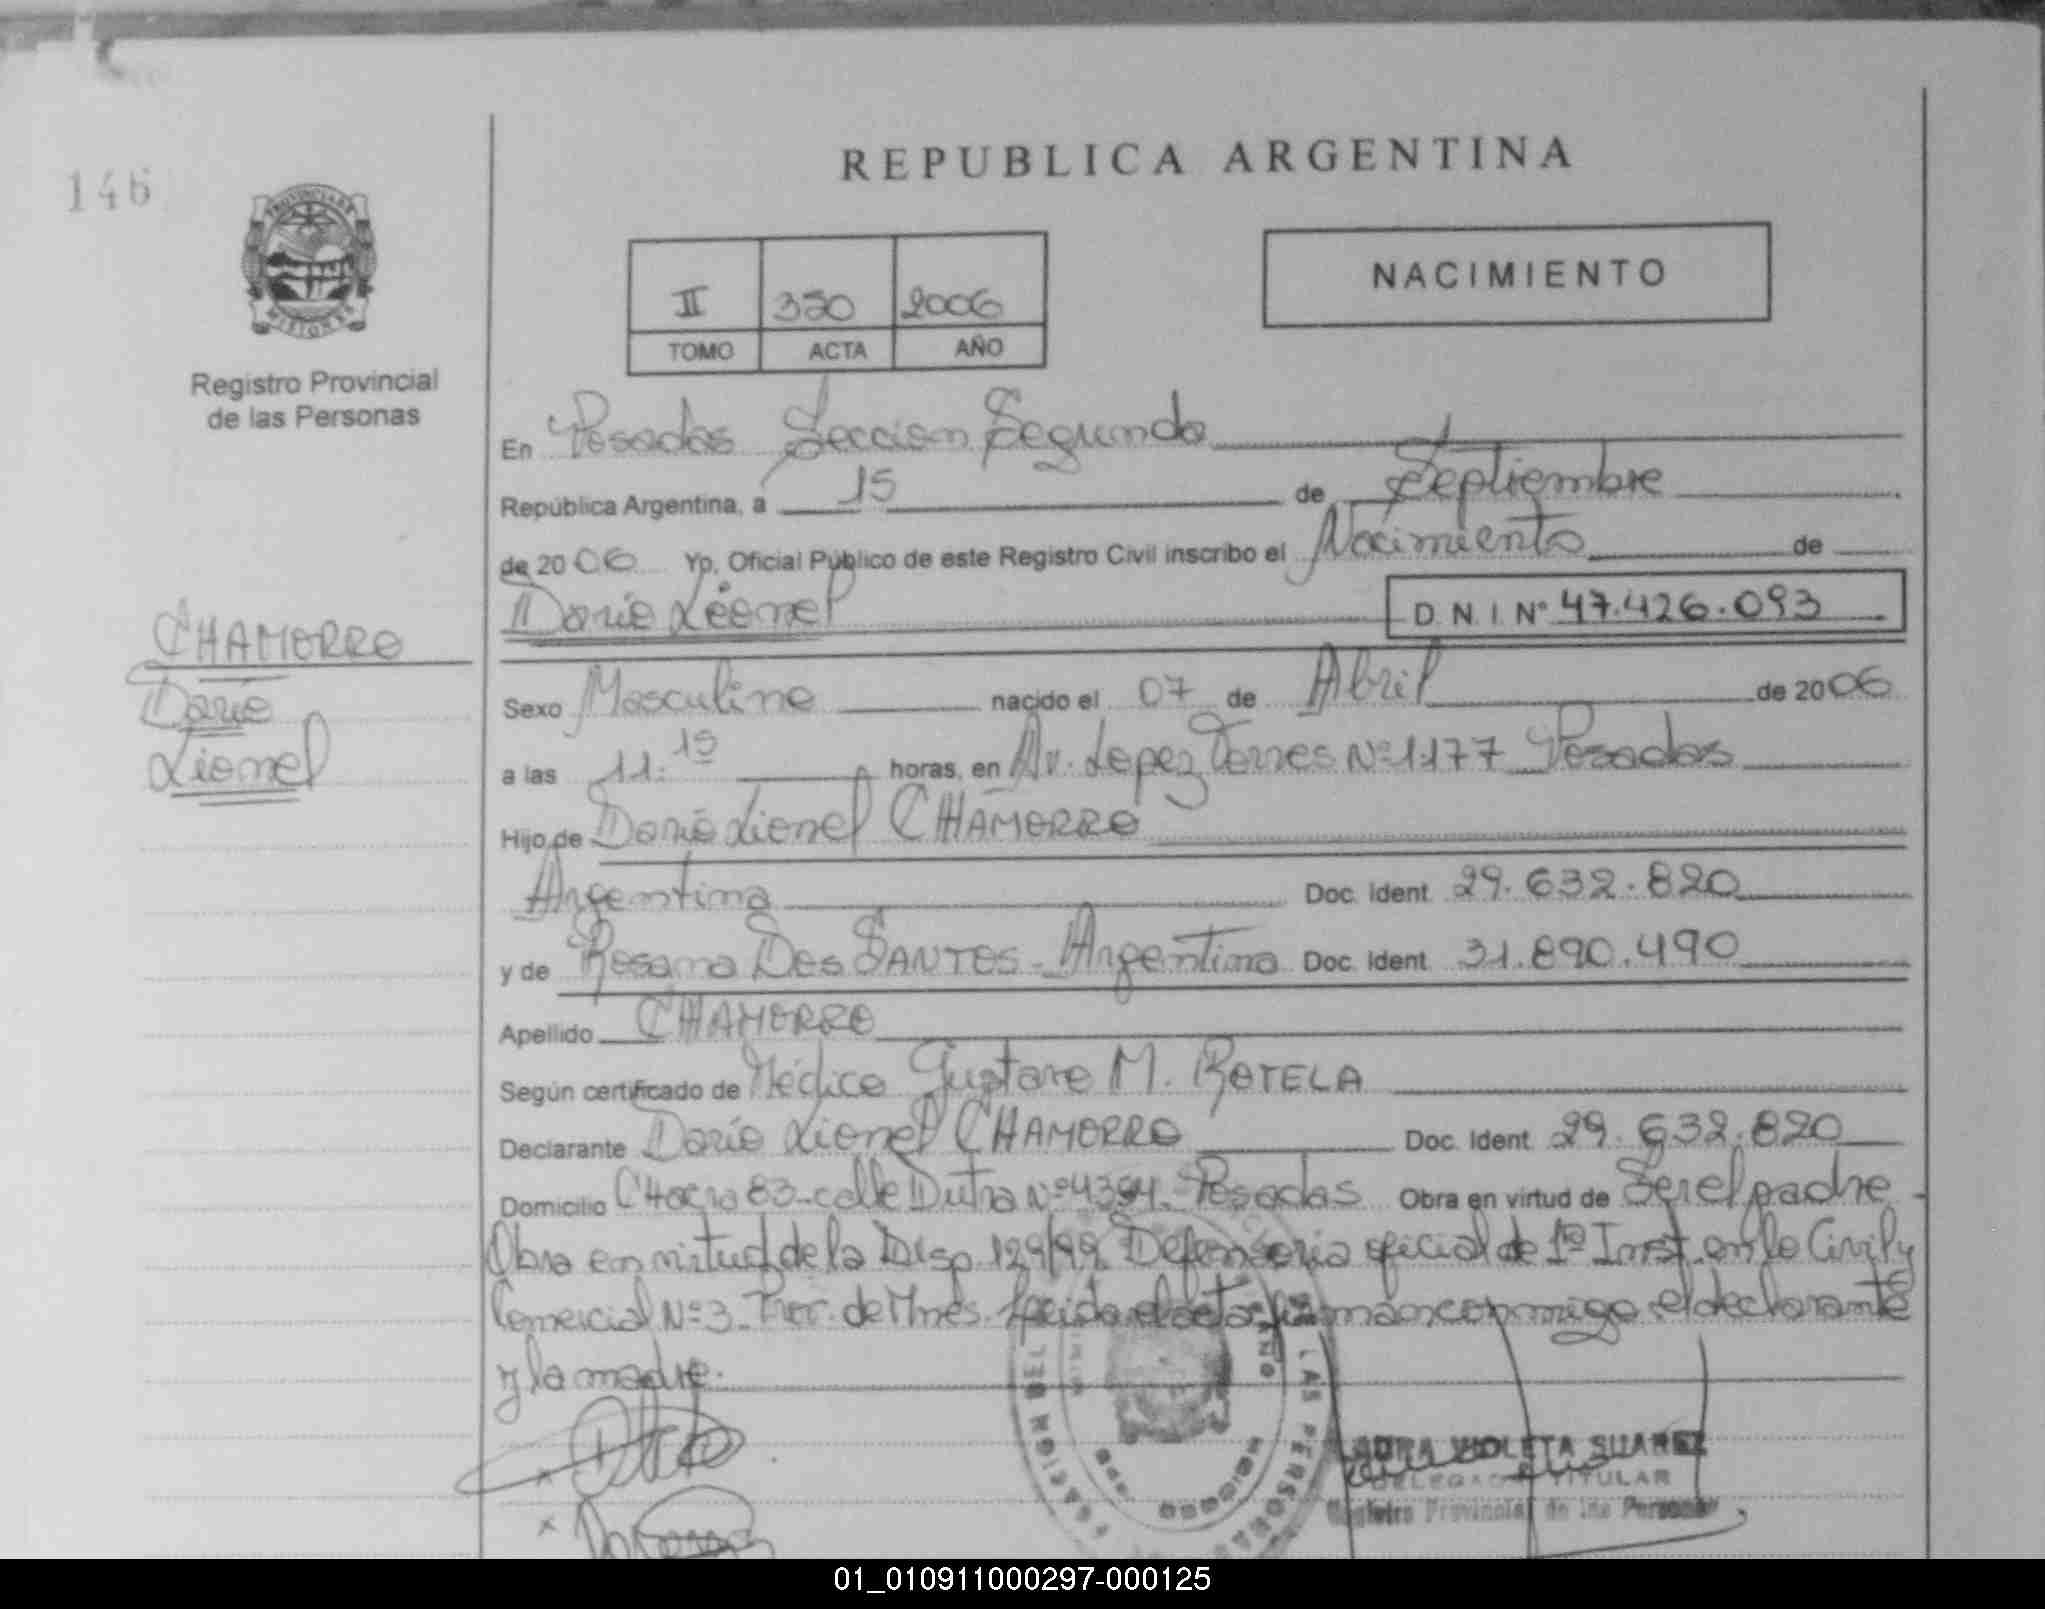 146
REPUBLICA ARGENTINA
PROVINCIA DE
MISIONES
Registro Provincial
de las Personas
II 350 2006
TOMO ACTA AÑO
NACIMIENTO
En Posadas Sección Segunda
República Argentina, a 15 de Septiembre
de 2006 Yo, Oficial Público de este Registro Civil inscribo el Nacimiento de
Darío Lionel
D. N. I. Nº 47.426.093
CHAMORRO
Darío
Lionel
Sexo Masculino nacido el 07 de Abril de 2006
a las 11:15 horas, en Av. Lopez Torres Nº 1177 Posadas
Hijo de Darío Lionel CHAMORRO
Argentina Doc. Ident. 29.632.820
y de Rosana Dos SANTOS - Argentina Doc. Ident. 31.890.490
Apellido CHAMORRO
Según certificado de Médico Gustavo M. ROTELA
Declarante Darío Lionel CHAMORRO Doc. Ident. 29.632.820
Domicilio CHacra 83 - calle Dutra Nº 4394 - Posadas Obra en virtud de Ser el padre -
Obra en virtud de la Disp. 129/99 Defensoría oficial de 1ra Inst. en lo Civil y
Comercial Nº 3 - Prov. de Mnes. Leída el acta firman conmigo el declarante
y la madre.
LAURA VIOLETA SUAREZ
DELEGADA TITULAR
Registro Provincial de las Personas
01_010911000297-000125